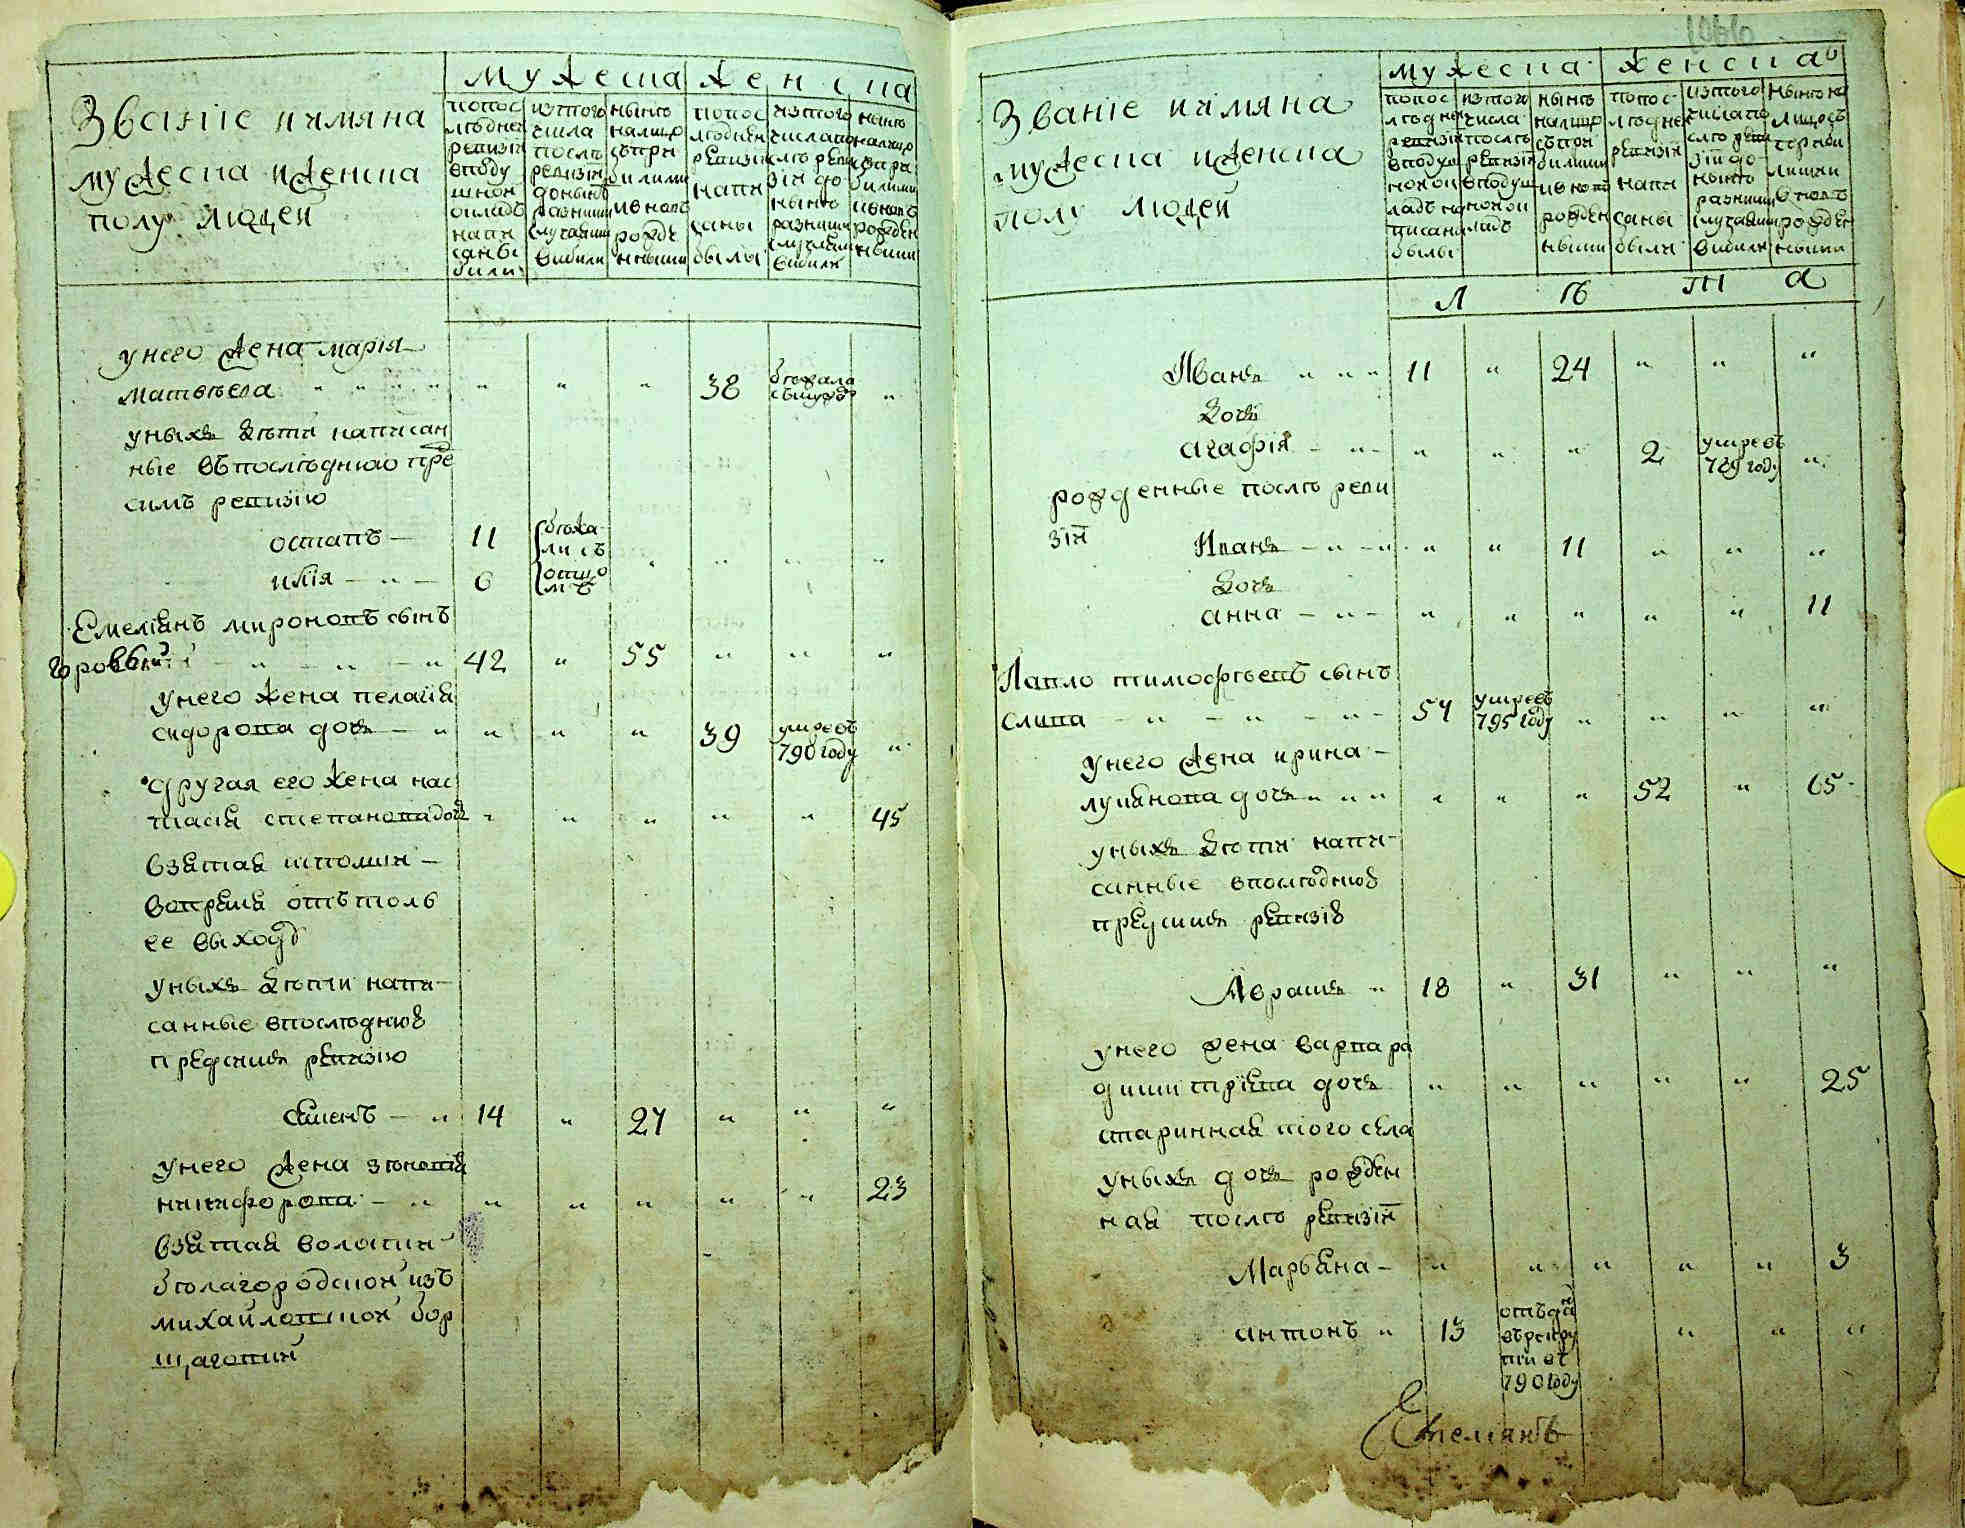 Званіе иимяна
мужеска иженска
полу людей
мужеска
женска
попос
лѣдней
ревизіи
вподу
шном
окладѣ
напи
саны
были
изтого
числа
послѣ
ревизіи
донынѣ
разними
случаями
вибили
нынѣ
налицо
съпри
билими
ивновь
рожде
нными
попос
лѣдней
ревизіи
напи
саны
были
изтого
числапо
слѣ реви
зіи до
нынѣ
разними
случаями
вибили
нынѣ
налицо
съпри
билими
ивновь
рожден
ными
унего жена марія
матвѣева " " " " " " " 38 бѣжала
съмужемъ "
унихъ дѣти написан
ные въпослѣднюю пре
симъ ревизію
остапъ — 11 бѣжа
лисъ
илія — " — 6 отцо
мъ
Емеліянъ мироновъ сынъ
— " — " — " 42 " 55 " " "
унего жена пелагія
сидорова дочь — " " " " 39 умревъ
790 году "
другая его жена нас
тасія степановадочь " " " " " 45
взятая
отъ толь
ее выходъ
унихъ дѣти напи-
санные впослѣднюю
предсимъ ревизію
семенъ — " 14 " 27 " " "
унего жена зѣновія
никифорова — " " " " " " 23
взятая волости
бѣлагородской изъ
михайловской бор
щаговки
Званіе иимяна
мужеска иженска
полу людей
мужеска
женска
попос
лѣдней
ревизіи
вподуш
ном ок
ладѣ на
писаны
былы
изтого
числа
послѣ
ревизіи
вподуш
ном ок
ладѣ
нынѣ
налицо
съпри
билими
ивновь
рожден
ными
попос
лѣдней
ревизіи
напи
саны
были
изтого
числапо
слѣ реви
зіи до
нынѣ
разними
случаями
вибили
нынѣ на
лицосъ
приби
лими
ивновь
рожден
ными
л ѣ т а
Иванъ " " " 11 " 24 " " "
дочь
агафія — " — " " " 2 умревъ
789 году "
рожденные послѣ реви
зіи
Иванъ — " — " " " 11 " " "
дочь
анна — " — " " " " " 11
Павло тимофѣевъ сынъ
слипа — " — " — " — 54 умревъ
795 году " " " "
унего жена ирина —
лукянова дочь " " " " " " 52 " 65
унихъ дѣти напи-
санные впослѣднюю
предсимъ ревизію
Аврамъ " 18 " 31 " " "
унего жена варвара
димитріева дочь " " " " " 25
старинная того села
унихъ дочь рожден
ная послѣ ревизіи
Маръяна — " " " " " 3
антонъ " 13 отъдан
върекру
ти въ
790 году " " "
Емеліянъ